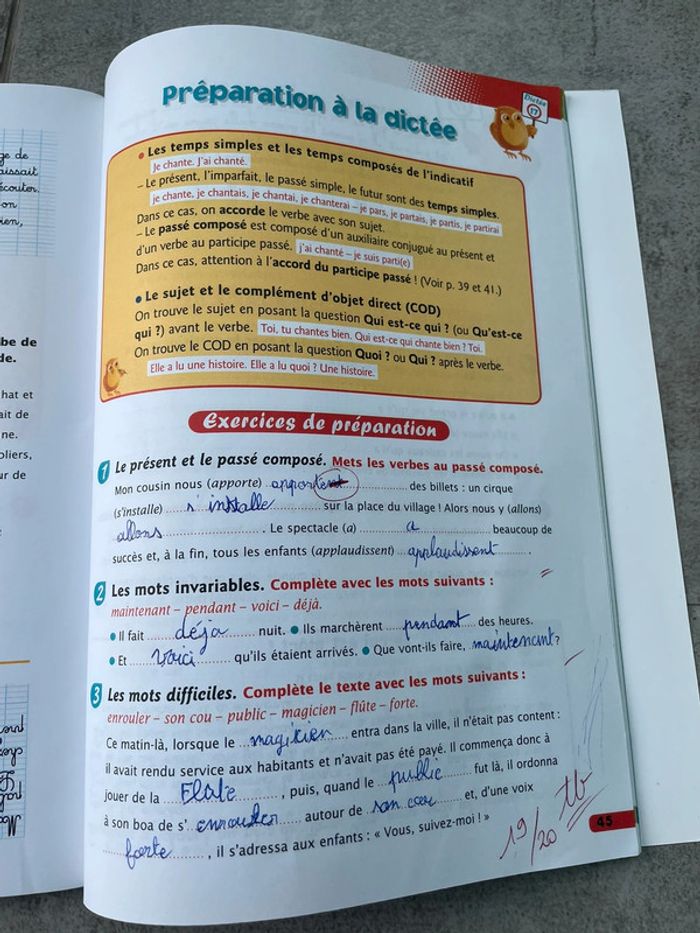 Préparation à la dictée
Dictée
17
• Les temps simples et les temps composés de l'indicatif
Je chante. J'ai chanté.
– Le présent, l'imparfait, le passé simple, le futur sont des temps simples.
je chante, je chantais, je chantai, je chanterai – je pars, je partais, je partis, je partirai
Dans ce cas, on accorde le verbe avec son sujet.
– Le passé composé est composé d'un auxiliaire conjugué au présent et
d'un verbe au participe passé. j'ai chanté – je suis parti(e)
Dans ce cas, attention à l'accord du participe passé ! (Voir p. 39 et 41.)
• Le sujet et le complément d'objet direct (COD)
On trouve le sujet en posant la question Qui est-ce qui ? (ou Qu'est-ce
qui ?) avant le verbe. Toi, tu chantes bien. Qui est-ce qui chante bien ? Toi.
On trouve le COD en posant la question Quoi ? ou Qui ? après le verbe.
Elle a lu une histoire. Elle a lu quoi ? Une histoire.
Exercices de préparation
1 Le présent et le passé composé. Mets les verbes au passé composé.
Mon cousin nous (apporte) apportent des billets : un cirque
(s'installe) s'installe sur la place du village ! Alors nous y (allons)
allons. Le spectacle (a) a beaucoup de
succès et, à la fin, tous les enfants (applaudissent) applaudissent.
2 Les mots invariables. Complète avec les mots suivants :
maintenant – pendant – voici – déjà.
• Il fait déja nuit. • Ils marchèrent pendant des heures.
• Et voici qu'ils étaient arrivés. • Que vont-ils faire, maintenant ?
3 Les mots difficiles. Complète le texte avec les mots suivants :
enrouler – son cou – public – magicien – flûte – forte.
Ce matin-là, lorsque le magicien entra dans la ville, il n'était pas content :
il avait rendu service aux habitants et n'avait pas été payé. Il commença donc à
jouer de la, puis, quand le public fut là, il ordonna
à son boa de s' enrouler autour de son cou et, d'une voix
forte, il s'adressa aux enfants : « Vous, suivez-moi ! »
tb
19/20
45
ge de
aissait
écouter.
on
ien,
be de
de.
hat et
ait de
ne.
oliers,
ur de